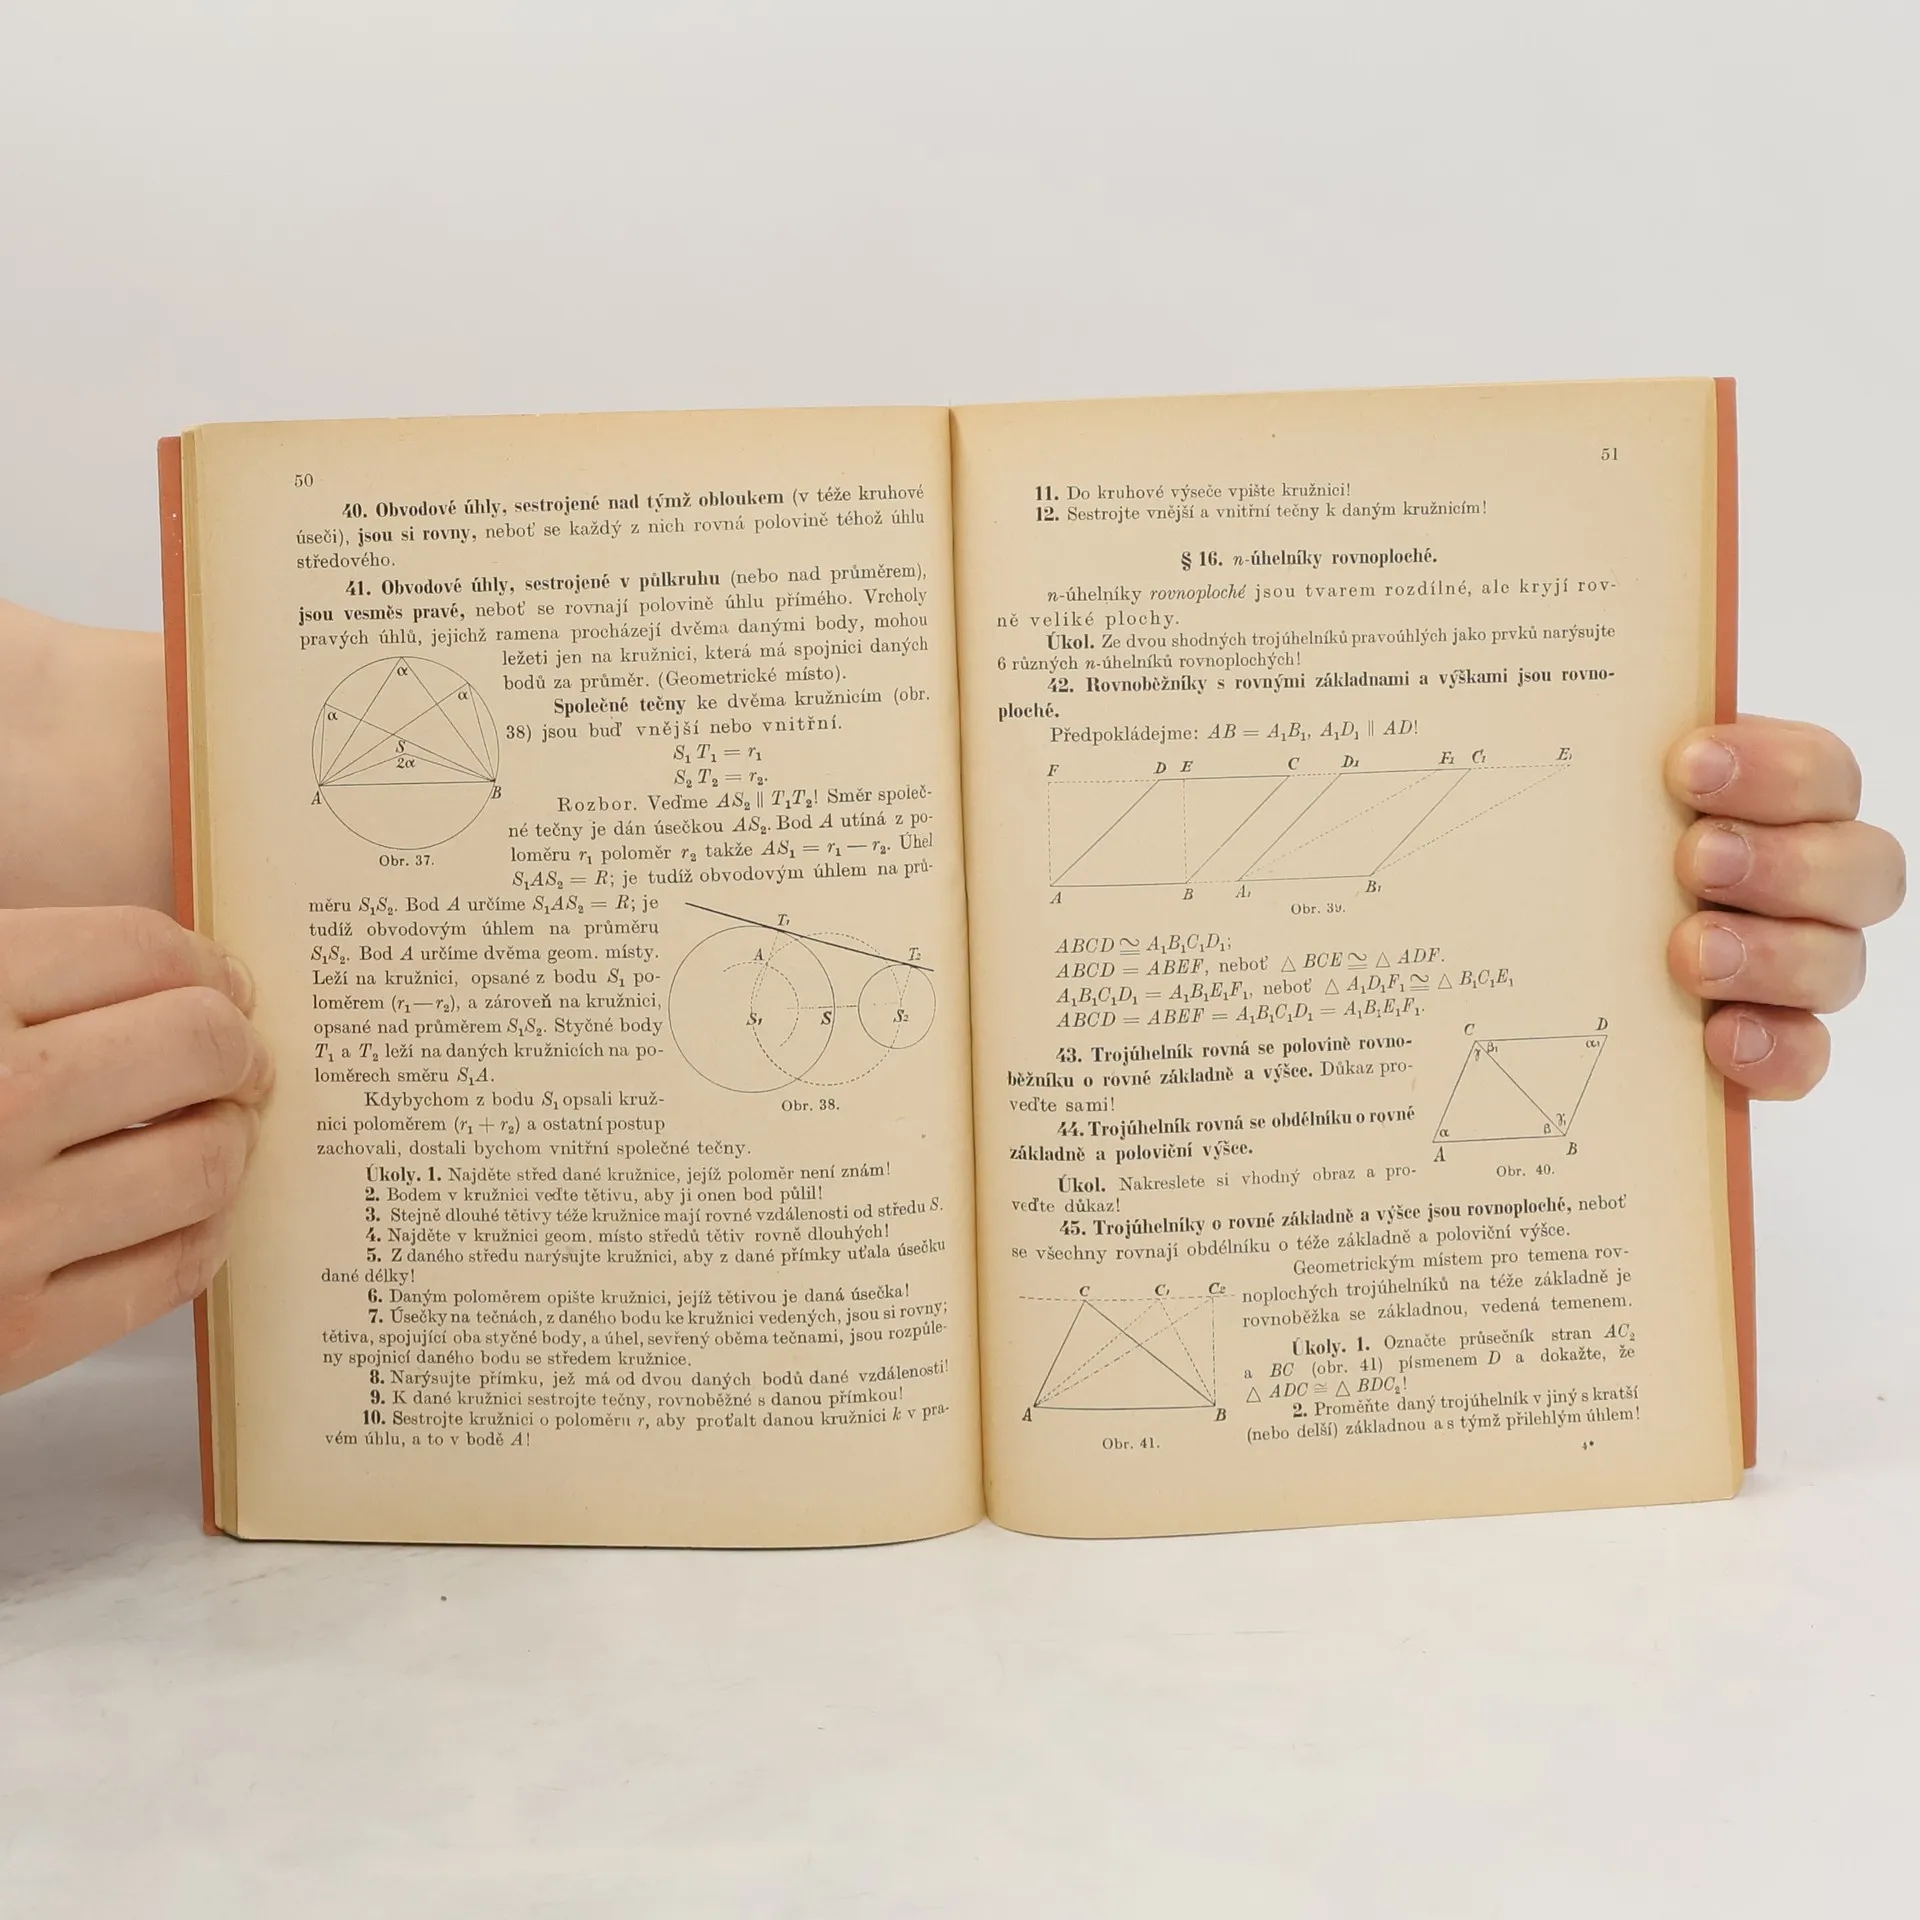 50
40. Obvodové úhly, sestrojené nad týmž obloukem (v téže kruhové
úseči), jsou si rovny, neboť se každý z nich rovná polovině téhož úhlu
středového.
41. Obvodové úhly, sestrojené v půlkruhu (nebo nad průměrem),
jsou vesměs pravé, neboť se rovnají polovině úhlu přímého. Vrcholy
pravých úhlů, jejichž ramena procházejí dvěma danými body, mohou
ležeti jen na kružnici, která má spojnici daných
bodů za průměr. (Geometrické místo).
Společné tečny ke dvěma kružnicím (obr.
38) jsou buď vnější nebo vnitřní.
S₁T₁ = r₁
S₂T₂ = r₂.
Rozbor. Veďme AS₂ ∥ T₁T₂! Směr společ-
né tečny je dán úsečkou AS₂. Bod A utíná z po-
loměru r₁ poloměr r₂ takže AS₁ = r₁ — r₂. Úhel
S₁AS₂ = R; je tudíž obvodovým úhlem na prů-
α
α
α
S
2α
A
B
Obr. 37.
měru S₁S₂. Bod A určíme S₁AS₂ = R; je
tudíž obvodovým úhlem na průměru
S₁S₂. Bod A určíme dvěma geom. místy.
Leží na kružnici, opsané z bodu S₁ po-
loměrem (r₁—r₂), a zároveň na kružnici,
opsané nad průměrem S₁S₂. Styčné body
T₁ a T₂ leží na daných kružnicích na po-
loměrech směru S₁A.
Kdybychom z bodu S₁ opsali kruž-
nici poloměrem (r₁ + r₂) a ostatní postup
zachovali, dostali bychom vnitřní společné tečny.
T₁
A
T₂
S₁
S
S₂
Obr. 38.
Úkoly. 1. Najděte střed dané kružnice, jejíž poloměr není znám!
2. Bodem v kružnici veďte tětivu, aby ji onen bod půlil!
3. Stejně dlouhé tětivy téže kružnice mají rovné vzdálenosti od středu S.
4. Najděte v kružnici geom. místo středů tětiv rovně dlouhých!
5. Z daného středu narýsujte kružnici, aby z dané přímky uťala úsečku
dané délky!
6. Daným poloměrem opište kružnici, jejíž tětivou je daná úsečka!
7. Úsečky na tečnách, z daného bodu ke kružnici vedených, jsou si rovny;
tětiva, spojující oba styčné body, a úhel, sevřený oběma tečnami, jsou rozpůle-
ny spojnicí daného bodu se středem kružnice.
8. Narýsujte přímku, jež má od dvou daných bodů dané vzdálenosti!
9. K dané kružnici sestrojte tečny, rovnoběžné s danou přímkou!
10. Sestrojte kružnici o poloměru r, aby proťalt danou kružnici k v pra-
vém úhlu, a to v bodě A!
51
11. Do kruhové výseče vpište kružnici!
12. Sestrojte vnější a vnitřní tečny k daným kružnicím!
§ 16. n-úhelníky rovnoploché.
n-úhelníky rovnoploché jsou tvarem rozdílné, ale kryjí rov-
ně veliké plochy.
Úkol. Ze dvou shodných trojúhelníků pravoúhlých jako prvků narýsujte
6 různých n-úhelníků rovnoplochých!
42. Rovnoběžníky s rovnými základnami a výškami jsou rovno-
ploché.
Předpokládejme: AB = A₁B₁, A₁D₁ ∥ AD!
F D E C D₁ F₁ C₁ E₁
A B A₁ B₁
Obr. 39.
ABCD ≅ A₁B₁C₁D₁;
ABCD = ABEF, neboť △ BCE ≅ △ ADF.
A₁B₁C₁D₁ = A₁B₁E₁F₁, neboť △ A₁D₁F₁ ≅ △ B₁C₁E₁
ABCD = ABEF = A₁B₁C₁D₁ = A₁B₁E₁F₁.
43. Trojúhelník rovná se polovině rovno-
běžníku o rovné základně a výšce. Důkaz pro-
veďte sami!
44. Trojúhelník rovná se obdélníku o rovné
základně a poloviční výšce.
Úkol. Nakreslete si vhodný obraz a pro-
veďte důkaz!
C D
γ β₁ α₁
α β γ₁
A B
Obr. 40.
45. Trojúhelníky o rovné základně a výšce jsou rovnoploché, neboť
se všechny rovnají obdélníku o téže základně a poloviční výšce.
Geometrickým místem pro temena rov-
noplochých trojúhelníků na téže základně je
rovnoběžka se základnou, vedená temenem.
Úkoly. 1. Označte průsečník stran AC₂
a BC (obr. 41) písmenem D a dokažte, že
△ ADC ≅ △ BDC₂!
2. Proměňte daný trojúhelník v jiný s kratší
(nebo delší) základnou a s týmž přilehlým úhlem!
C C₁ C₂
A B
Obr. 41.
4*